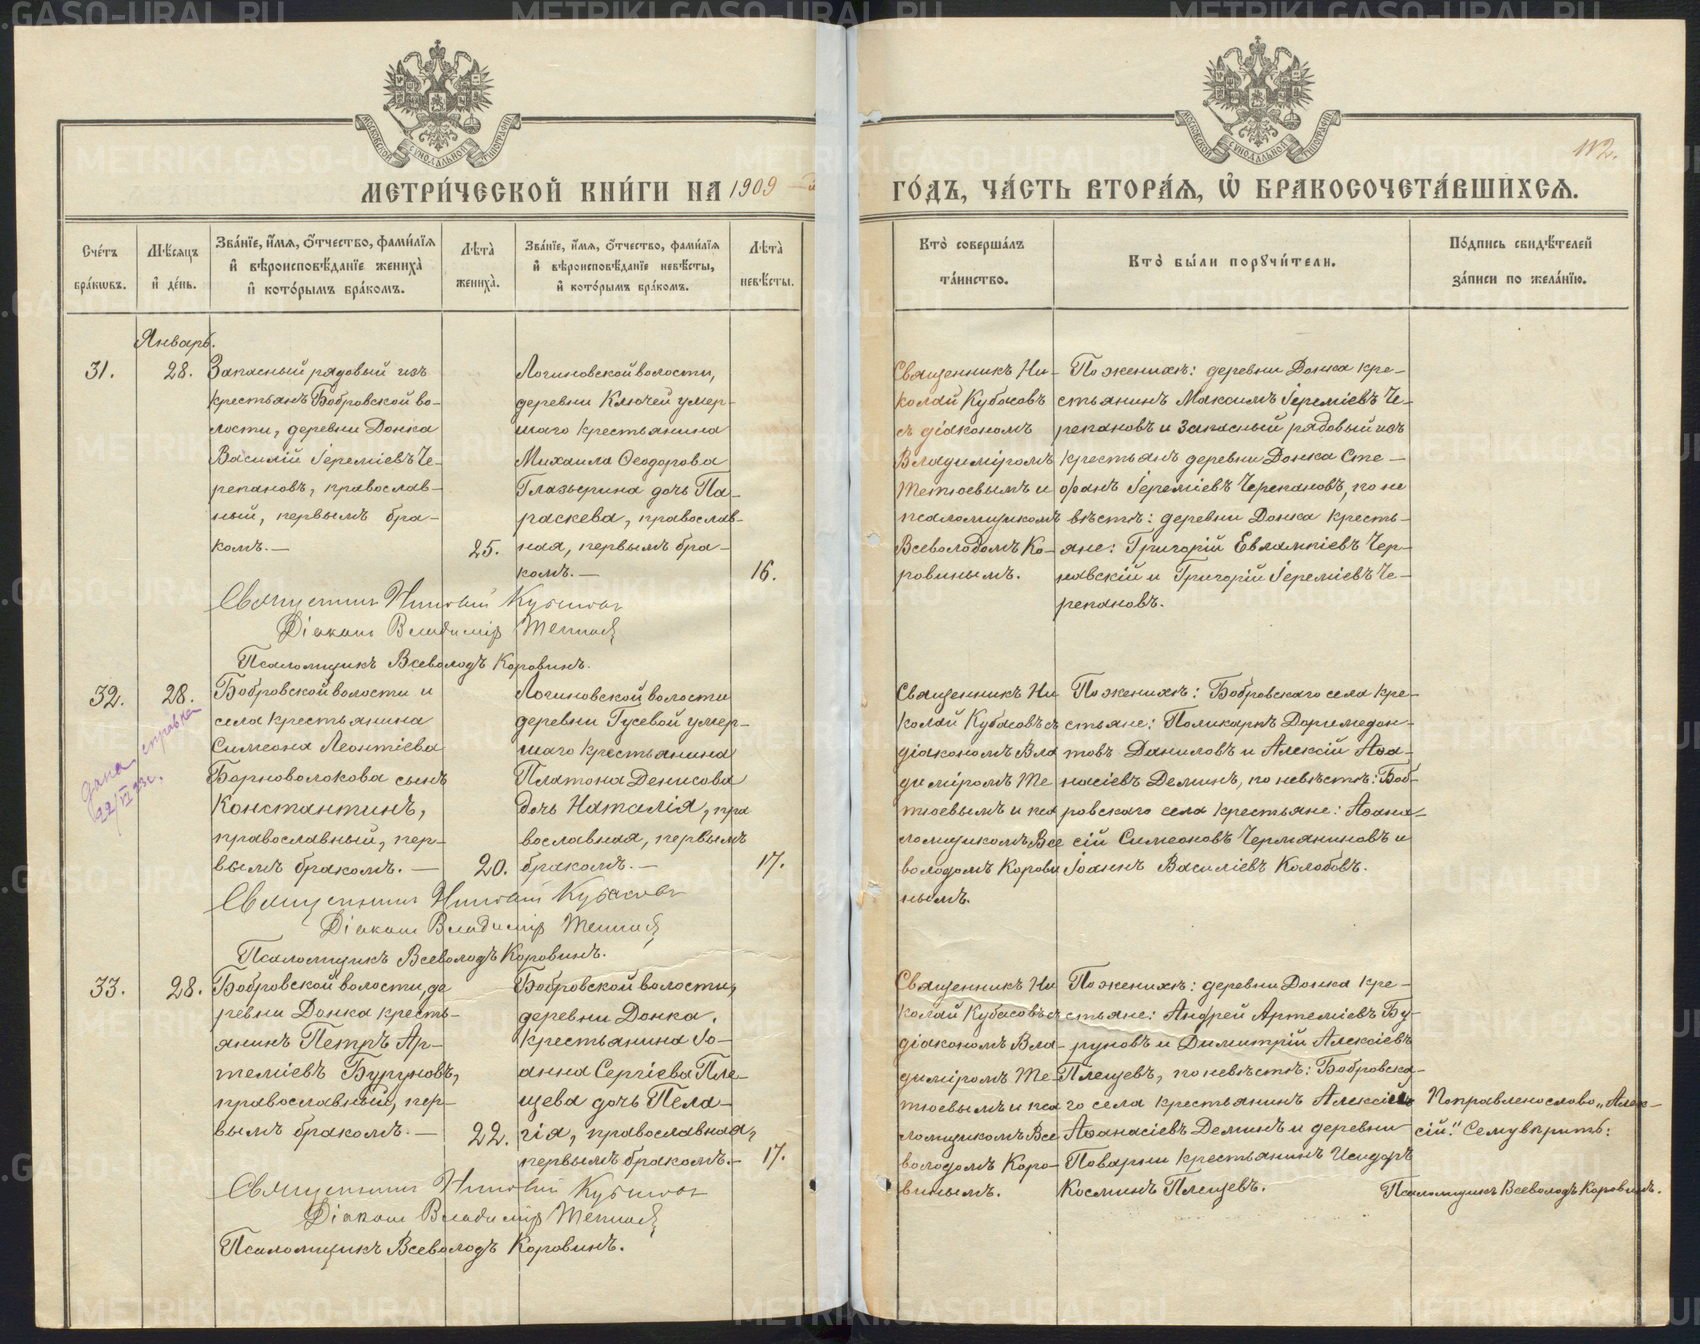 МЕТРИ́ЧЕСКОЙ КНИ́ГИ НА 1909
ГО́ДЪ, ЧА́СТЬ ВТОРА́Я, Ѡ҆ БРАКОСОЧЕТА́ВШИХСЯ.
112.
Сче́тъ
бра́кѡвъ.
Мѣ́сяцъ
и҆ де́нь.
Зва́нїе, и҆́мя, ѻ҆́тчество, фами́лїя
и҆ вѣроисповѣ́данїе жениха̀
и҆ кото́рымъ бра́комъ.
Лѣта̀
жениха̀.
Зва́нїе, и҆́мя, ѻ҆́тчество, фами́лїя
и҆ вѣроисповѣ́данїе невѣ́сты,
и҆ кото́рымъ бра́комъ.
Лѣта̀
невѣ́сты.
Кто̀ соверша́лъ
та́инство.
Кто̀ бы́ли порꙋчи́тели.
По́дпись свидѣ́телей
за́писи по жела́нїю.
Январь.
31.
28.
Запасный рядовый изъ
крестьянъ Бобровской во-
лости, деревни Донка
Василій Іереміевъ Че-
репановъ, православ-
ный, первымъ бра-
комъ.—
25.
Логиновской волости,
деревни Ключей умер-
шаго крестьянина
Михаила Ѳеодорова
Глазырина дочь Па-
раскева, православ-
ная, первымъ бра-
комъ.—
16.
Священникъ Ни-
колай Кубасовъ
съ діакономъ
Владиміромъ
Тетюевымъ и
псаломщикомъ
Всеволодомъ Ко-
ровинымъ.
По женихѣ: деревни Донка кре-
стьянинъ Максимъ Іереміевъ Че-
репановъ и запасный рядовый изъ
крестьянъ деревни Донка Сте-
фанъ Іереміевъ Черепановъ, по не
вѣстѣ: деревни Донка кресть-
яне: Григорій Евлампіевъ Чер-
навскій и Григорій Іереміевъ Че-
репановъ.
Священникъ Николай Кубасовъ
Діаконъ Владиміръ Тетюевъ
Псаломщикъ Всеволодъ Коровинъ.
32.
28.
дана справка
22/VI 23г.
Бобровской волости и
села крестьянина
Симеона Леонтіева
Борноволокова сынъ
Константинъ,
православный, пер-
вымъ бракомъ.—
20.
Логиновской волости
деревни Гусевой умер-
шаго крестьянина
Платона Денисова
дочь Наталія, пра
вославная, первымъ
бракомъ.—
17.
Священникъ Ни
колай Кубасовъ съ
діакономъ Вла
диміромъ Те
тюевымъ и пса
ломщикомъ Все
володомъ Корови
нымъ.
По женихѣ: Бобровскаго села кре-
стьяне: Поликарпъ Доримедон-
товъ Даниловъ и Алексій Аѳа-
насіевъ Деминъ, по невѣстѣ: Боб-
ровскаго села крестьяне: Аѳана-
сій Симеоновъ Чермяниновъ и
Іоаннъ Василіевъ Колобовъ.
Священникъ Николай Кубасовъ
Діаконъ Владиміръ Тетюевъ
Псаломщикъ Всеволодъ Коровинъ.
33.
28.
Бобровской волости, де
ревни Донка кресть-
янинъ Петръ Ар-
теміевъ Буруновъ,
православный, пер-
вымъ бракомъ.—
22.
Бобровской волости,
деревни Донка,
крестьянина Іо-
анна Сергіева Пле-
щева дочь Пела-
гія, православная,
первымъ бракомъ.—
17.
Священникъ Ни
колай Кубасовъ съ
діакономъ Вла-
диміромъ Те-
тюевымъ и пса
ломщикомъ Все
володомъ Коро-
винымъ.
По женихѣ: деревни Донка кре-
стьяне: Андрей Артеміевъ Бу-
руновъ и Димитрій Алексіевъ
Плещевъ, по невѣстѣ: Бобровска-
го села крестьянинъ Алексій
Аѳанасіевъ Деминъ и деревни
Поварни крестьянинъ Исидоръ
Косминъ Плещевъ.
Поправлено слово „Алек-
сій“. Сему вѣрить:
Псаломщикъ Всеволодъ Коровинъ.
Священникъ Николай Кубасовъ
Діаконъ Владиміръ Тетюевъ
Псаломщикъ Всеволодъ Коровинъ.